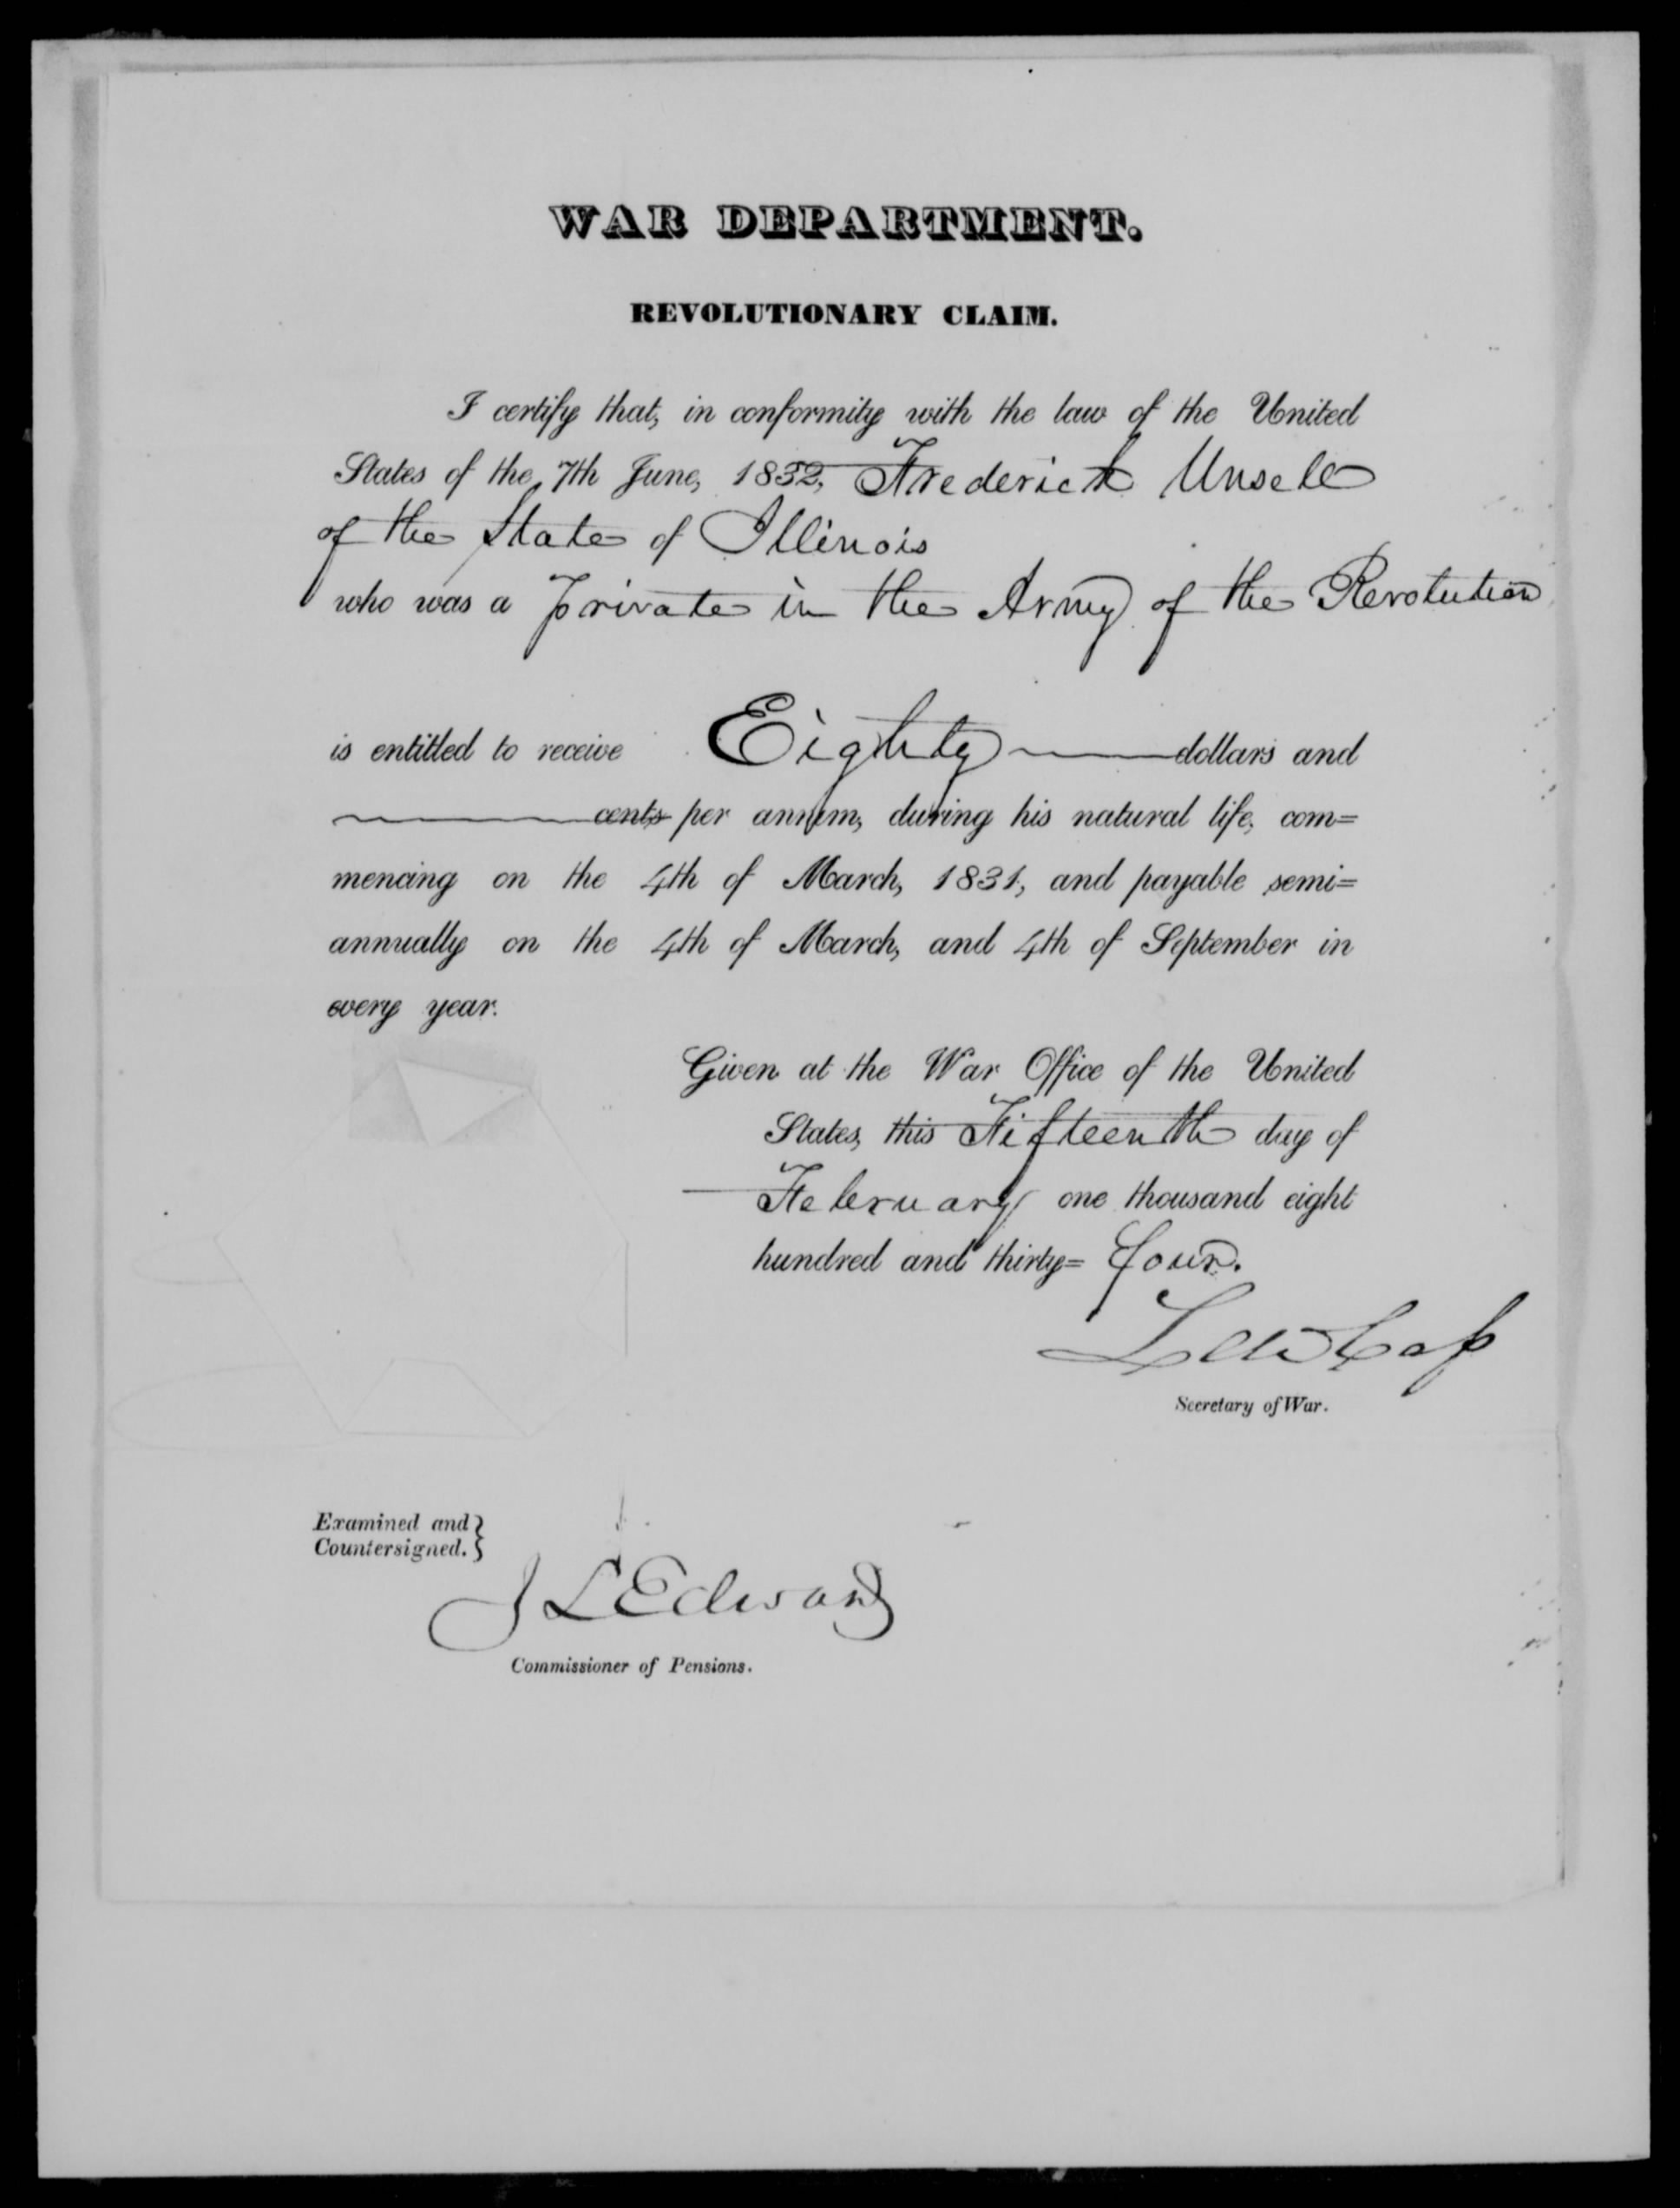 WAR DEPARTMENT.
REVOLUTIONARY CLAIM.
I certify that, in conformity with the law of the United
States of the 7th June, 1832, Frederick Unsell
of the State of Illinois
who was a private in the Army of the Revolution
is entitled to receive Eighty dollars and
cents per annum, during his natural life, com=
mencing on the 4th of March, 1831, and payable semi=
annually on the 4th of March, and 4th of September in
every year.
Given at the War Office of the United
States, this Fifteenth day of
February one thousand eight
hundred and thirty= four.
Lew Cass
Secretary of War.
Examined and }
Countersigned. }
J L Edwards
Commissioner of Pensions.